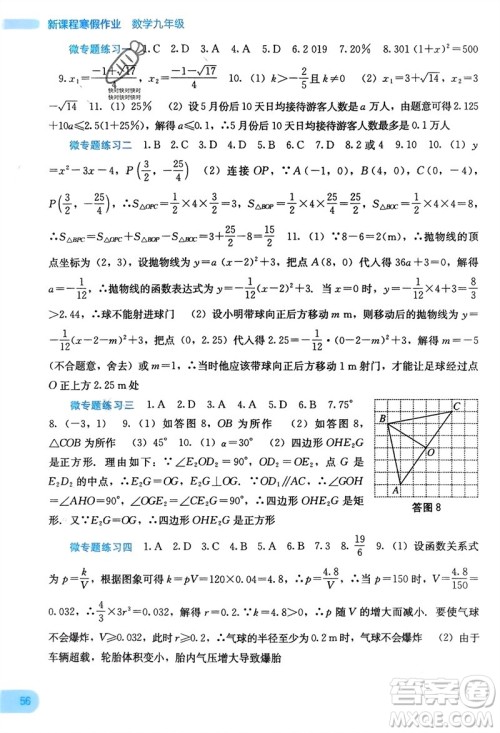 新课程寒假作业 数学九年级
微专题练习一 1.A 2.C 3.C 4.A 5.D 6.2 019 7.20% 8.
9.x₁=(-1+√17)/4,x₂=(-1-√17)/4 10.(1)k>-5/8 (2)x₁=-3+√14,x₂=-3
-√14 11.(1)20% (2)设5月份后10天日均接待游客人数是a万人,由题意可得2.125
+10a≤2.5(1+20%),∴a≤0.1,∴5月份后10天日均接待游客人数最多是0.1万人
微专题练习二 1.B 2.C 3.D 4.A 5.D 6.D 7.D 8.2或4 9. 10.(1)y
=x²-3x-4,P(3/2,-25/4) (2)连接OP,∵A(-1,0),B(4,0),C(0,-4),P
(3/2,-25/4),∴S△OPC=1/2×4×3/2=3,S△BOP=1/2×4×25/4=25/2,S△BOC=1/2×4×4=8,
∴S△BPC=S△OPC+S△BOP-S△BOC=3+25/2-8=15/2 11.(1)∵8-6=2(m),∴抛物线的顶
点坐标为(2,3),设抛物线为y=a(x-2)²+3,把点A(8,0)代入得36a+3=0,解得a=
-1/12,∴抛物线的函数表达式为y=-1/12(x-2)²+3,当x=0时,y=-1/12×4+3=8/3
>2.44,∴球不能射进球门 (2)设小明带球向正后方移动m米,则移动后的抛物线为y
=-1/12(x-2-m)²+3,把点(0,2.25)代入得2.25=-1/12(0-2-m)²+3,解得m=-5
(不合题意,舍去)或m=1,∴当时他应该带球向正后方移动1m射门,才能让足球经过点
O正上方2.25m处
微专题练习三 1.A 2.D 3.D 4.A 5.C 6.B 7.75°
8.(-3,1) 9.(1)如答图8,AB为所作 (2)如答图8,
△COB为所作 (3)45° 10.(1)略 (2)四边形OHE₂G
是正方形.理由如下:∵∠E₂OD₂=90°,点G是
E₂D₂的中点,∴OG=GE₂=GD₂,∵OD₁∥AC,∴∠GOH=
∠AHO=90°,∵∠E₂HO=90°,∴四边形OHE₂G是矩
形.又∵OG=GE₂,∴四边形OHE₂G是正方形
B
C
O
A
答图8
微专题练习四 1.A 2.D 3.C 4.B 5.C 6.D 7.3 8.19/6 9.(1)设函数关系式
为p=k/V,根据图象可得k=pV=120×0.04=4.8,∴p=4.8/V,∴当p=150时,V=4.8/150=
0.032,∴4/3×3r³=0.032,解得r=0.2,∵k=4.8>0,∴p随V的增大而减小.要使气
球不会爆炸,V≥0.032,此时r≥0.2,∴气球的半径至少为0.2m时,气球不会爆炸 (2)由于
车辆超载,轮胎体积变小,胎内气压增大导致爆胎
56